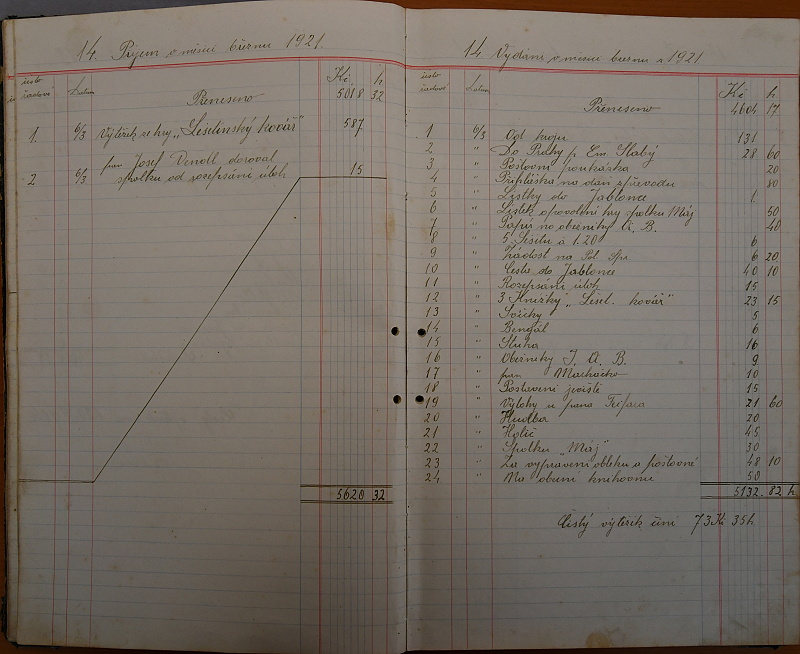 14. Příjem v měsíci březnu 1921.
číslo řadové Datum Kč h
Přeneseno 5018 32
1. 6/3 Výtěžek ze hry „Lešetínský kovář" 587
pan Josef daroval
2 6/3 spolku od rozepsání úloh 15
5620 32
14. Vydání v měsíci březnu 1921
číslo řadové Datum Kč h
Přeneseno 4604 17
1 6/3 Od krojů 131
2 " Do Prahy p. Em. Slabý 28 60
3 " Poštovní poukázka 20
4 " Přihláška na daň z převodu 80
5 " Lístky do Jablonce 1
6 " Lístek o povolení hry spolku Máj 50
7 " Papír na oberniky A. B. 40
8 " 5 Sešitů a 1.20 6
9 " Žádost na Pol. Spr. 6 20
10 " Cesta do Jablonce 40 10
11 " Rozepsání úloh 15
12 " 3 Knížky „Lešet. kovář" 23 15
13 " Svíčky 5
14 " Bengál 6
15 " Stuha 16
16 " Oberniky J. A. B. 9
17 " pan Machačka 10
18 " Postavení jeviště 15
19 " Výlohy u pana 21 60
20 " Hudba 20
21 " Holič 45
22 " Spolku „Máj" 30
23 " Za vypravení obleku a poštovné 48 10
24 " Na obecní knihovnu 50
5132. 82 h
Čistý výtěžek činí 73 Kč 35h